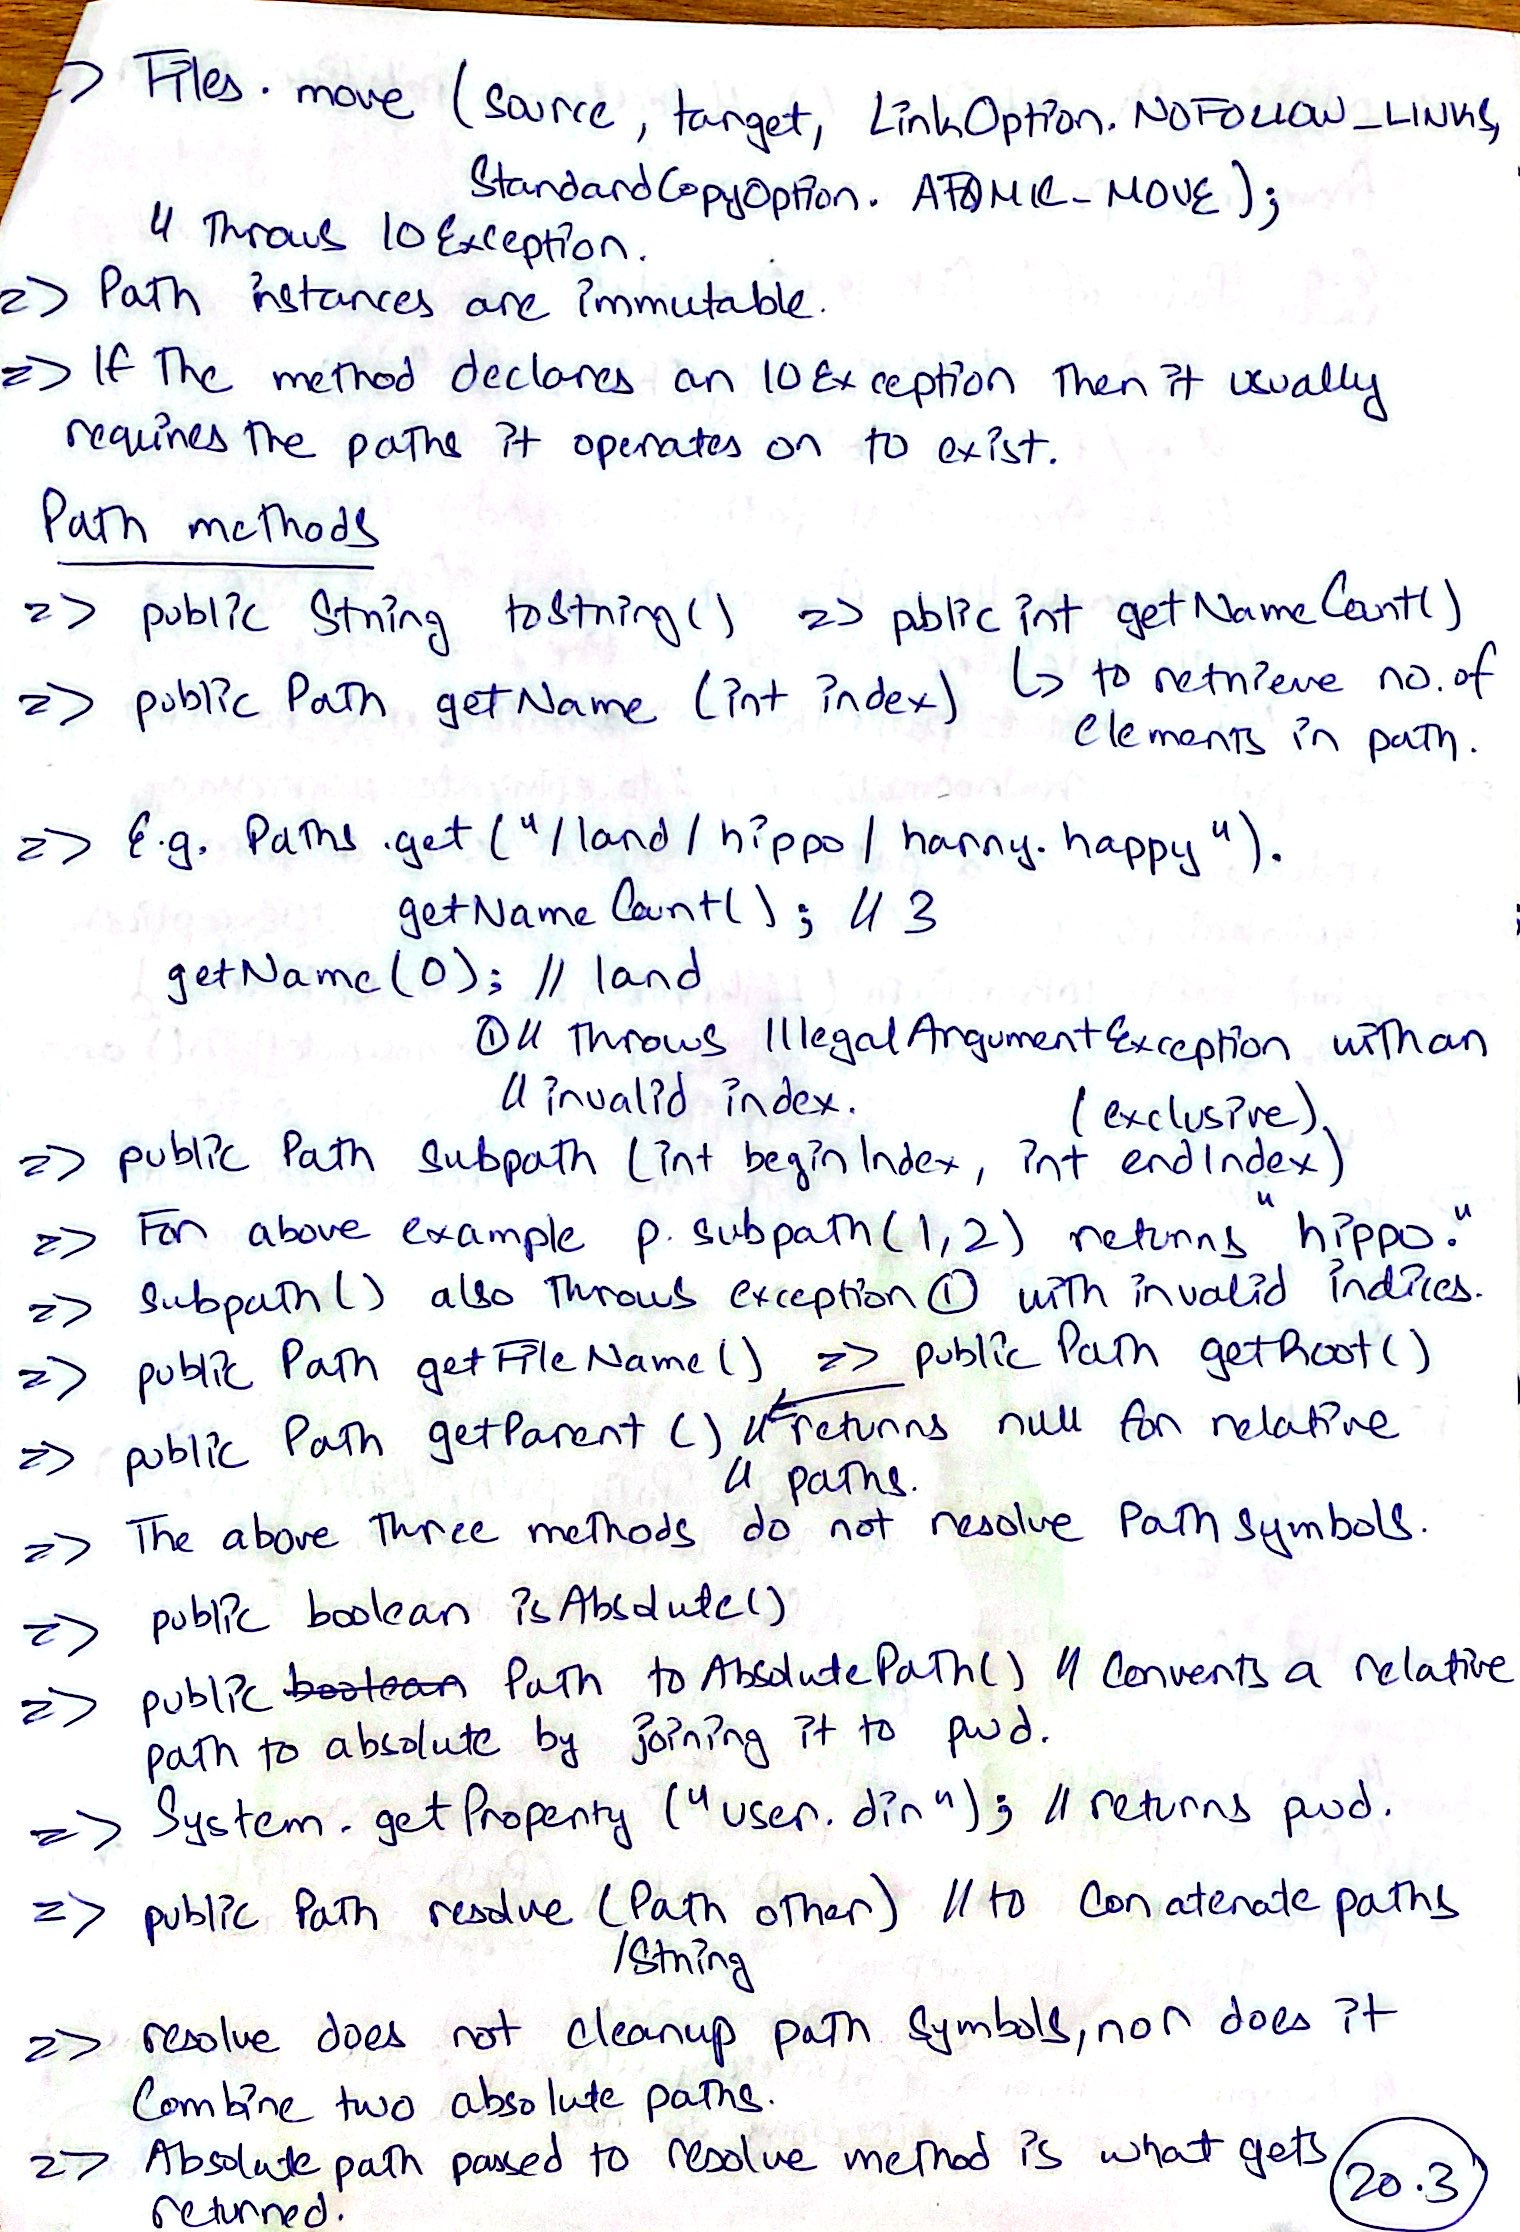 => Files.move (source, target, LinkOption.NOFOLLOW_LINKS,
StandardCopyOption.ATOMIC_MOVE);
// Throws IOException.
=> Path instances are immutable.
=> If the method declares an IOException then it usually
requires the paths it operates on to exist.
Path methods
=> public String toString() => pblic int getNameCount()
=> public Path getName (int index) ↳ to retrieve no. of
elements in path.
=> E.g. Paths.get("/land/hippo/harry.happy").
getNameCount(); // 3
getName(0); // land
① // throws IllegalArgumentException with an
// invalid index.
(exclusive)
=> public Path subpath (int beginIndex, int endIndex)
=> For above example p.subpath(1,2) returns "hippo."
=> subpath() also throws exception ① with invalid indices.
=> public Path getFileName() => public Path getRoot()
=> public Path getParent () // returns null for relative
// paths.
=> The above three methods do not resolve path symbols.
=> public boolean isAbsolute()
=> public boolean Path toAbsolutePath() // Converts a relative
path to absolute by joining it to pwd.
=> System.getProperty ("user.dir"); // returns pwd.
=> public Path resolve (Path other) // to Conatenate paths
/String
=> resolve does not cleanup path symbols, nor does it
Combine two absolute paths.
=> Absolute path passed to resolve method is what gets
returned.
20.3